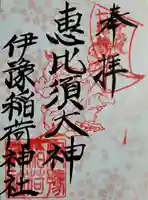 奉拝
恵比須大神
伊豫稲荷神社